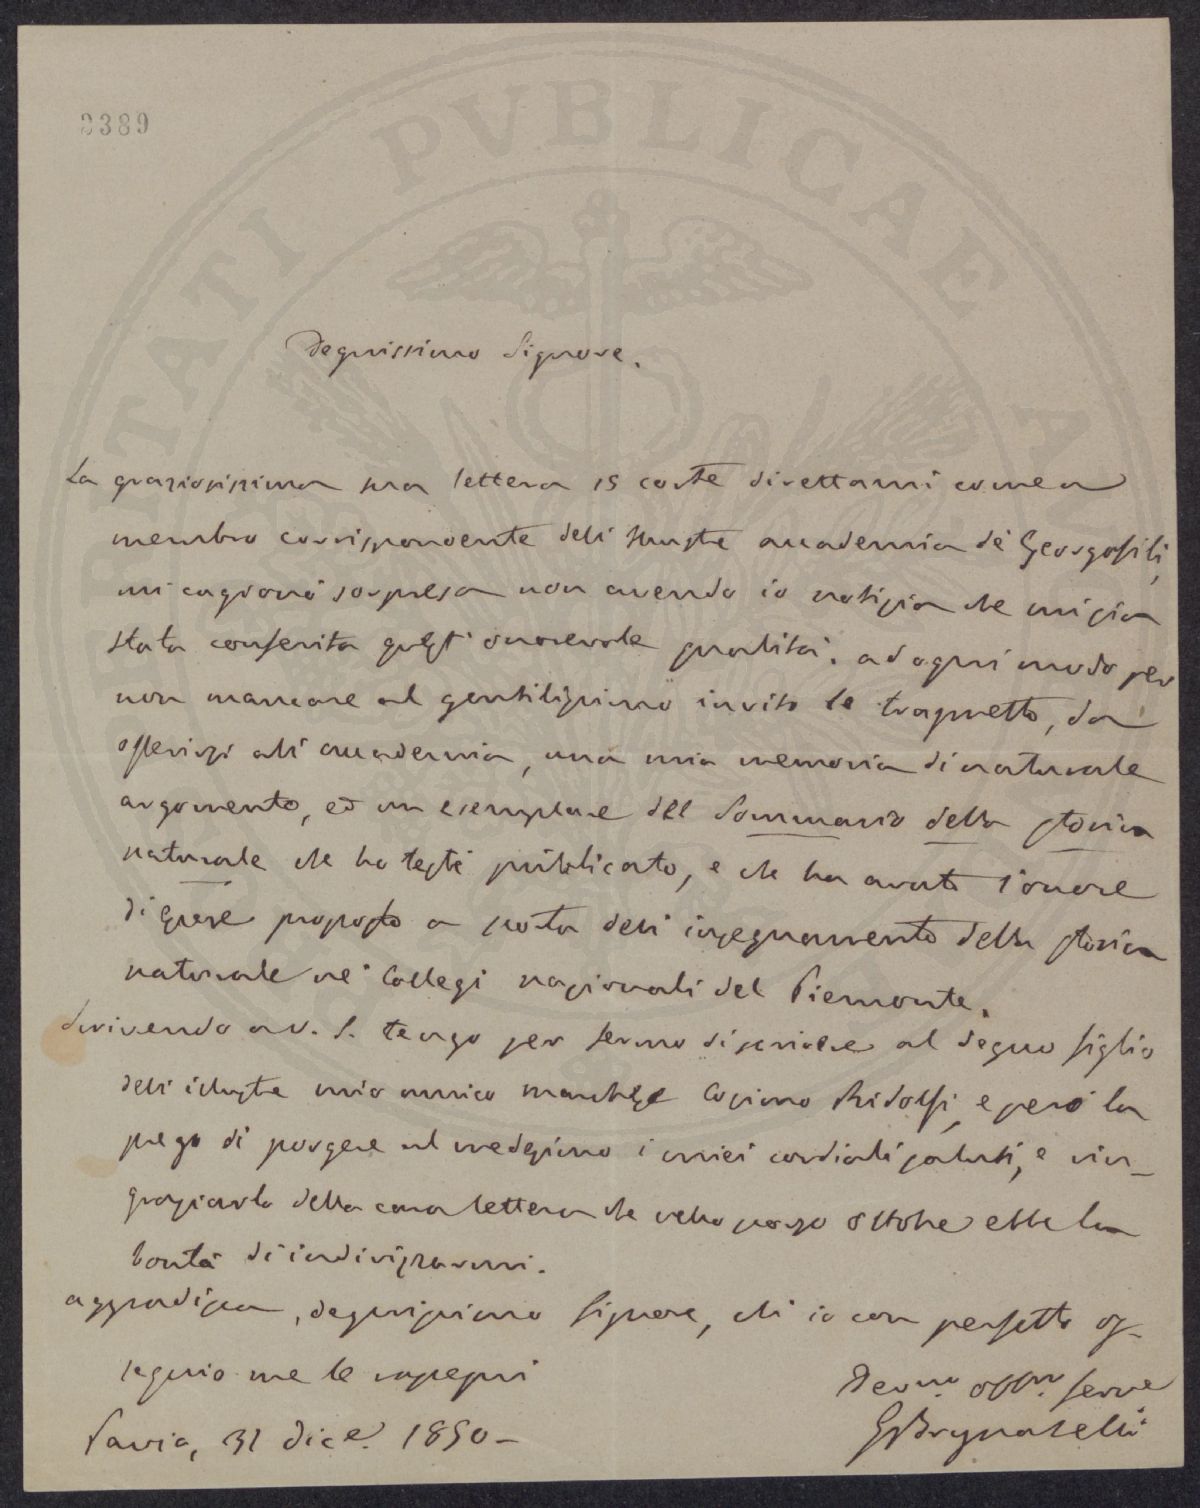 2389
PROSPERITATI PVBLICAE A
Degnissimo Signore.
La graziosissima sua lettera 15 corr.te direttami come a
membro corrispondente dell' illustre accademia de' Georgofili,
mi cagionò sorpresa non avendo io notizia che mi sia
stata conferita quest' onorevole qualità. ad ogni modo per
non mancare al gentilissimo invito le trasmetto, da
offerirsi all' accademia, una mia memoria di naturale
argomento, ed un esemplare del Sommario della storia
naturale che ho testè pubblicato, e che ha avuto l'onore
di essere proposto a norma dell' insegnamento della storia
naturale ne' Collegi nazionali del Piemonte.
Scrivendo a V. S. tengo per fermo di scrivere al degno figlio
dell' illustre mio amico marchese Cosimo Ridolfi, e però la
prego di porgere al medesimo i miei cordiali saluti, e rin-
graziarlo della cara lettera che nello scorso ottobre ebbe la
bontà di indirizzarmi.
aggradisca, degnissimo Signore, ch' io con perfetto os-
sequio me le rassegni
Dev.mo obb.mo servo
GBrugnatelli
Pavia, 31 dice. 1850-